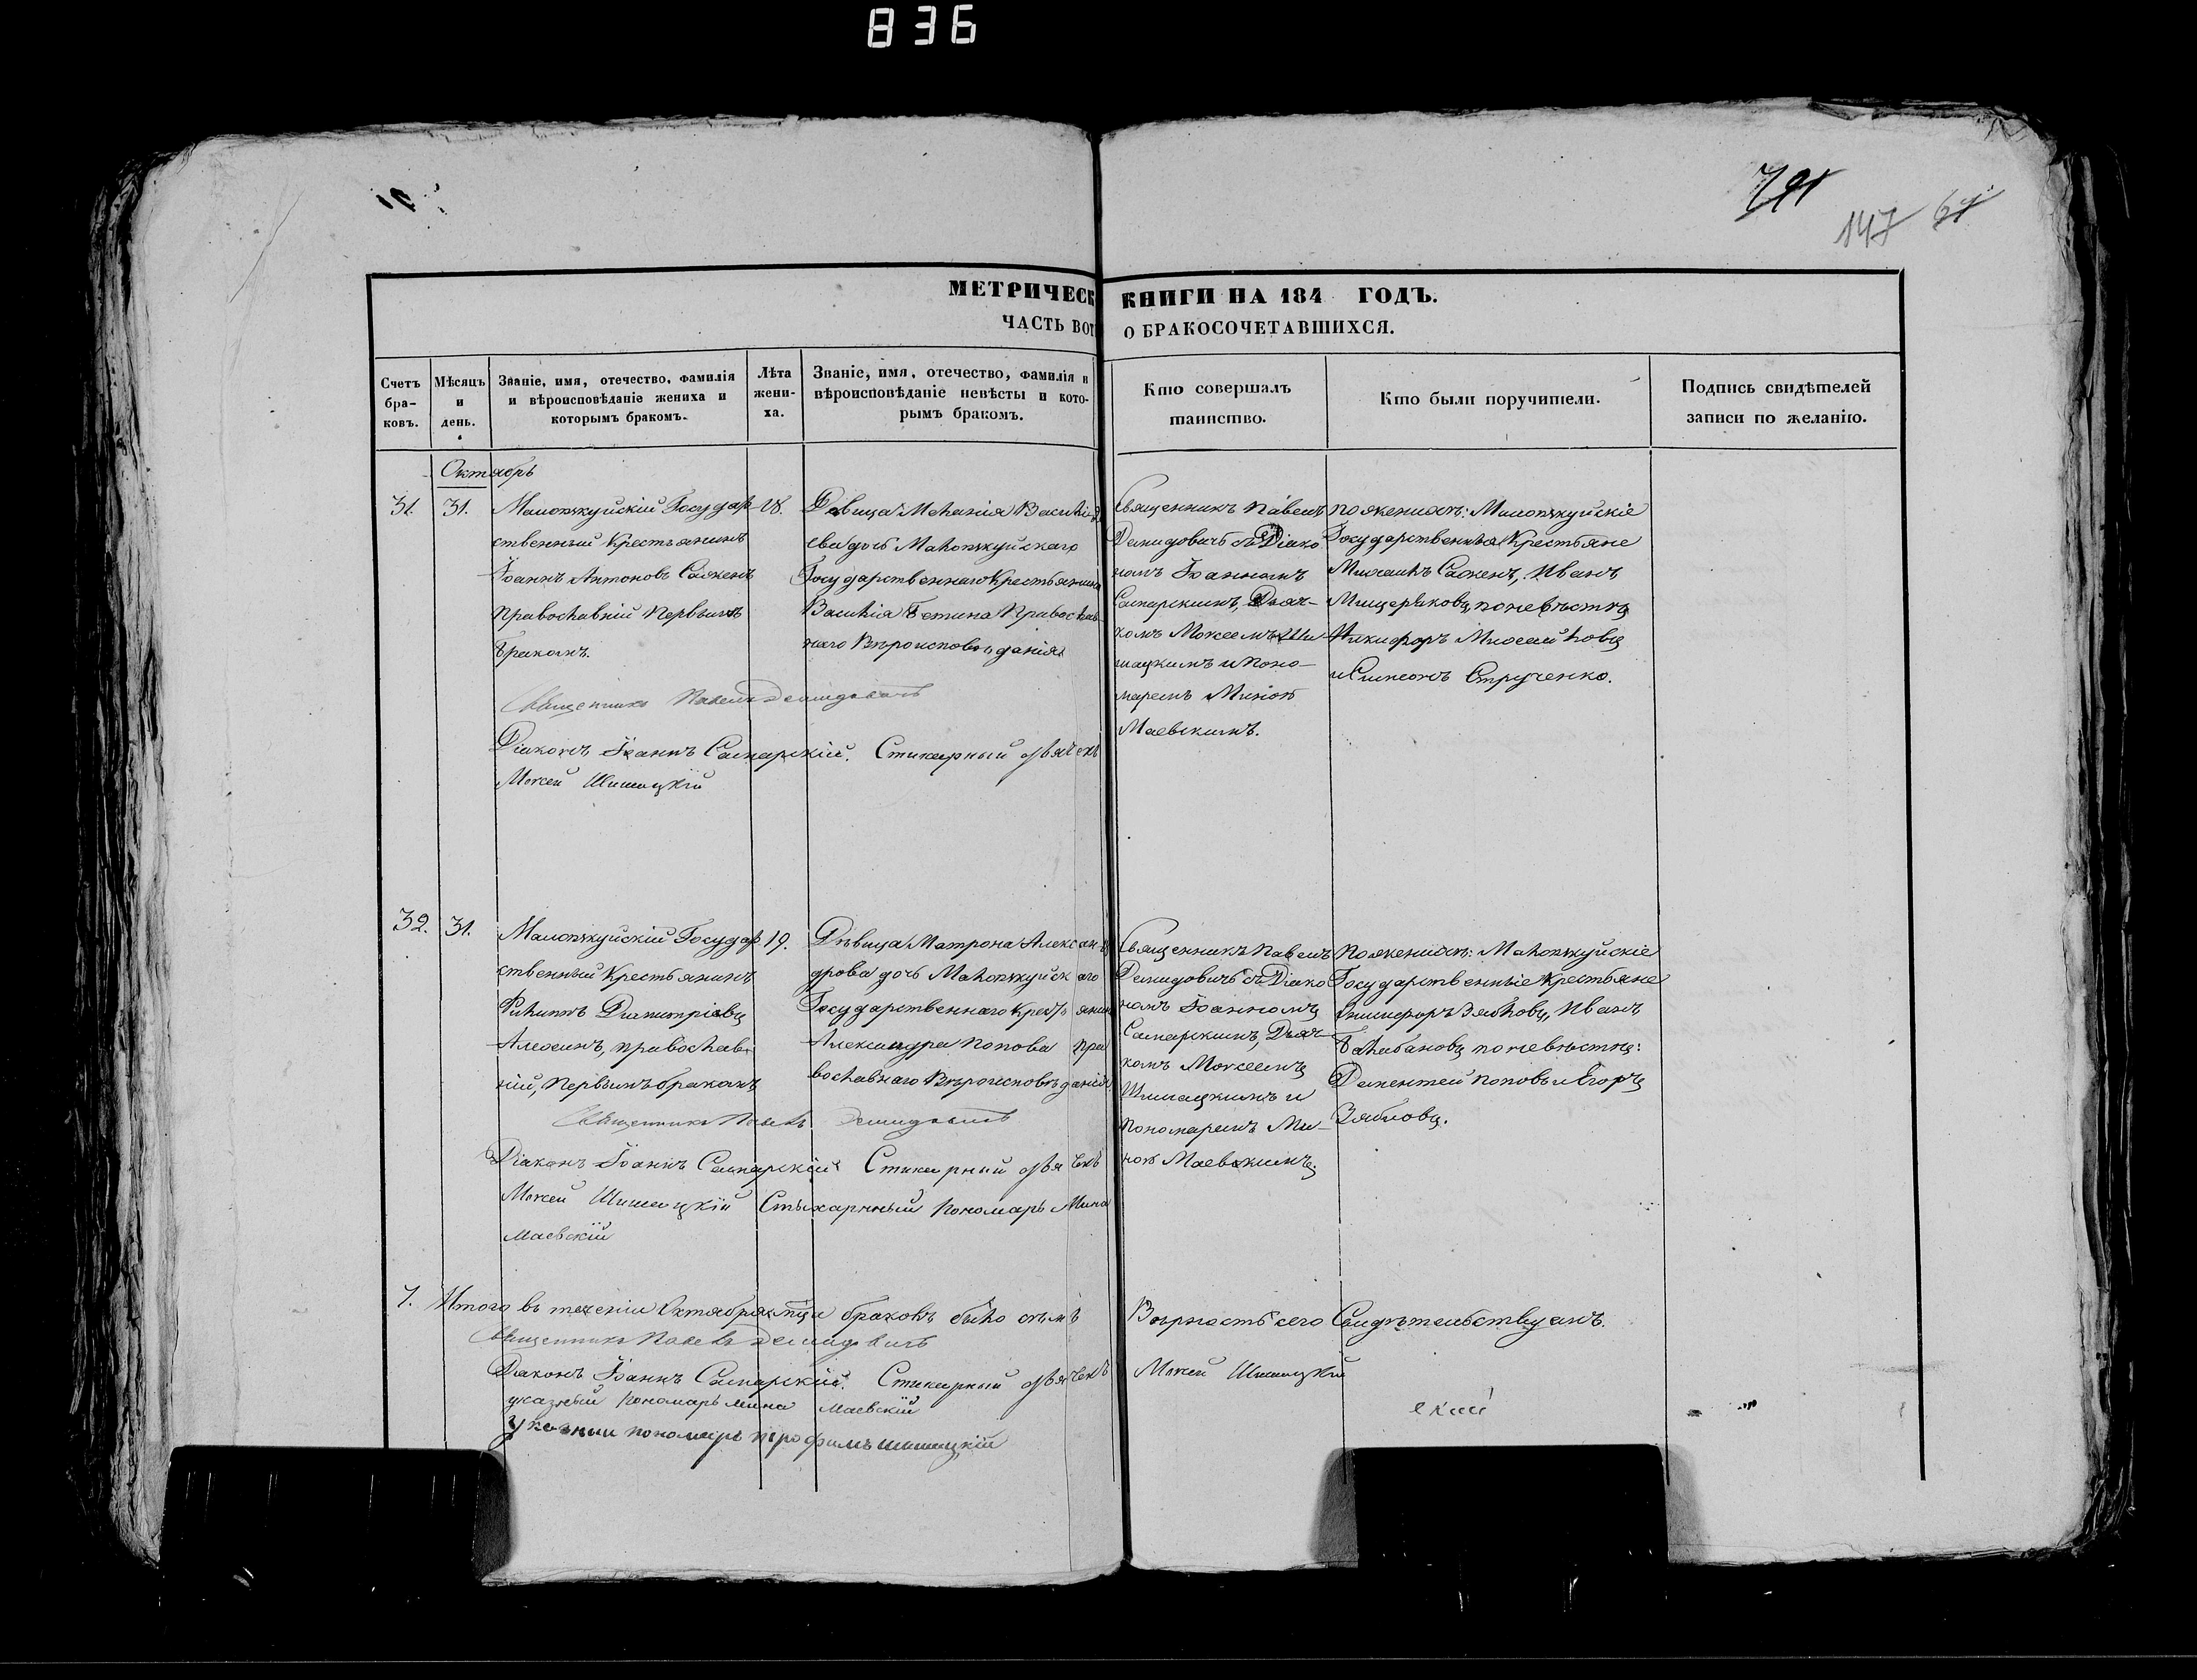 836
791
147 61
МЕТРИЧЕСК КНИГИ НА 184 ГОДЪ.
ЧАСТЬ ВОТ О БРАКОСОЧЕТАВШИХСЯ.
Счетъ бра-
ковъ.
Мѣсяцъ
и
день.
Званіе, имя, отечество, фамилія
и вѣроисповѣданіе жениха и
которымъ бракомъ.
Лѣта
жени-
ха.
Званіе, имя, отечество, фамилія и
вѣроисповѣданіе невѣсты и кото-
рымъ бракомъ.
Кто совершалъ
таинство.
Кто были поручители.
Подпись свидѣтелей
записи по желанію.
Октябрь
31. 31.
Малопѣкуйскій Государ
ственный Крестьянинъ
Іоаннъ Антоновъ Сажень
Православній Первымъ
Бракомъ.
18.
Дѣвица Меланія Василіе
ева дочь Малопѣкуйскаго
Государственнаго Крестьянина
Василія Гетина Православ
наго Вѣроисповѣданія
Священникъ Павелъ
Демидовичь съ Діако
номъ Іоанномъ
Самарскимъ, Дьяч-
комъ Моисеемъ Ши-
шацкимъ и Поно-
маремъ Миною
Маевскимъ.
По женихѣ: Малопѣкуйскіе
Государственныя Крестьяне
Михаилъ Сажень, Иванъ
Мищеряковъ, по невѣстѣ
Никифоръ Михайловъ
и Симеонъ Струченко.
Священникъ Павелъ Демидовичь
Діаконъ Іоаннъ Самарскій. Стихарный дьячекъ
Моисей Шишацкій
32. 31.
Малопѣкуйскій Государ
ственный Крестьянинъ
Филиппъ Димитріевъ
Алехинъ, Православ-
ній, Первымъ бракомъ
19.
Дѣвица Матрона Алексан-
дрова дочь Малопѣкуйскаго
Государственнаго Крестьянина
Александра Попова Пра
вославнаго Вѣроисповѣданія
Священникъ Павелъ
Демидовичь съ Діако
номъ Іоанномъ
Самарскимъ, Дьяч-
комъ Моисеемъ
Шишацкимъ и
Пономаремъ Ми-
ною Маевскимъ.
По женихѣ: Малопѣкуйскіе
Государственные Крестьяне
Никифоръ Зябловъ, Иванъ
Балабановъ по невѣстѣ:
Дементей Поповъ и Егоръ
Зябловъ.
Священникъ Павелъ Демидовичь
Діаконъ Іоаннъ Самарскій Стихарный дьячекъ
Моисей Шишацкій Стихарный Пономарь Мина
Маевскій
7. Итого въ теченіи Октября мца браковъ было семь
Вѣрность сего Свидѣтельствуемъ.
Священникъ Павелъ Демидовичь
Діаконъ Іоаннъ Самарскій. Стихарный дьячекъ Моисей Шишацкій
указный Пономарь Мина Маевскій
Указный пономарь трофимъ шишацкій